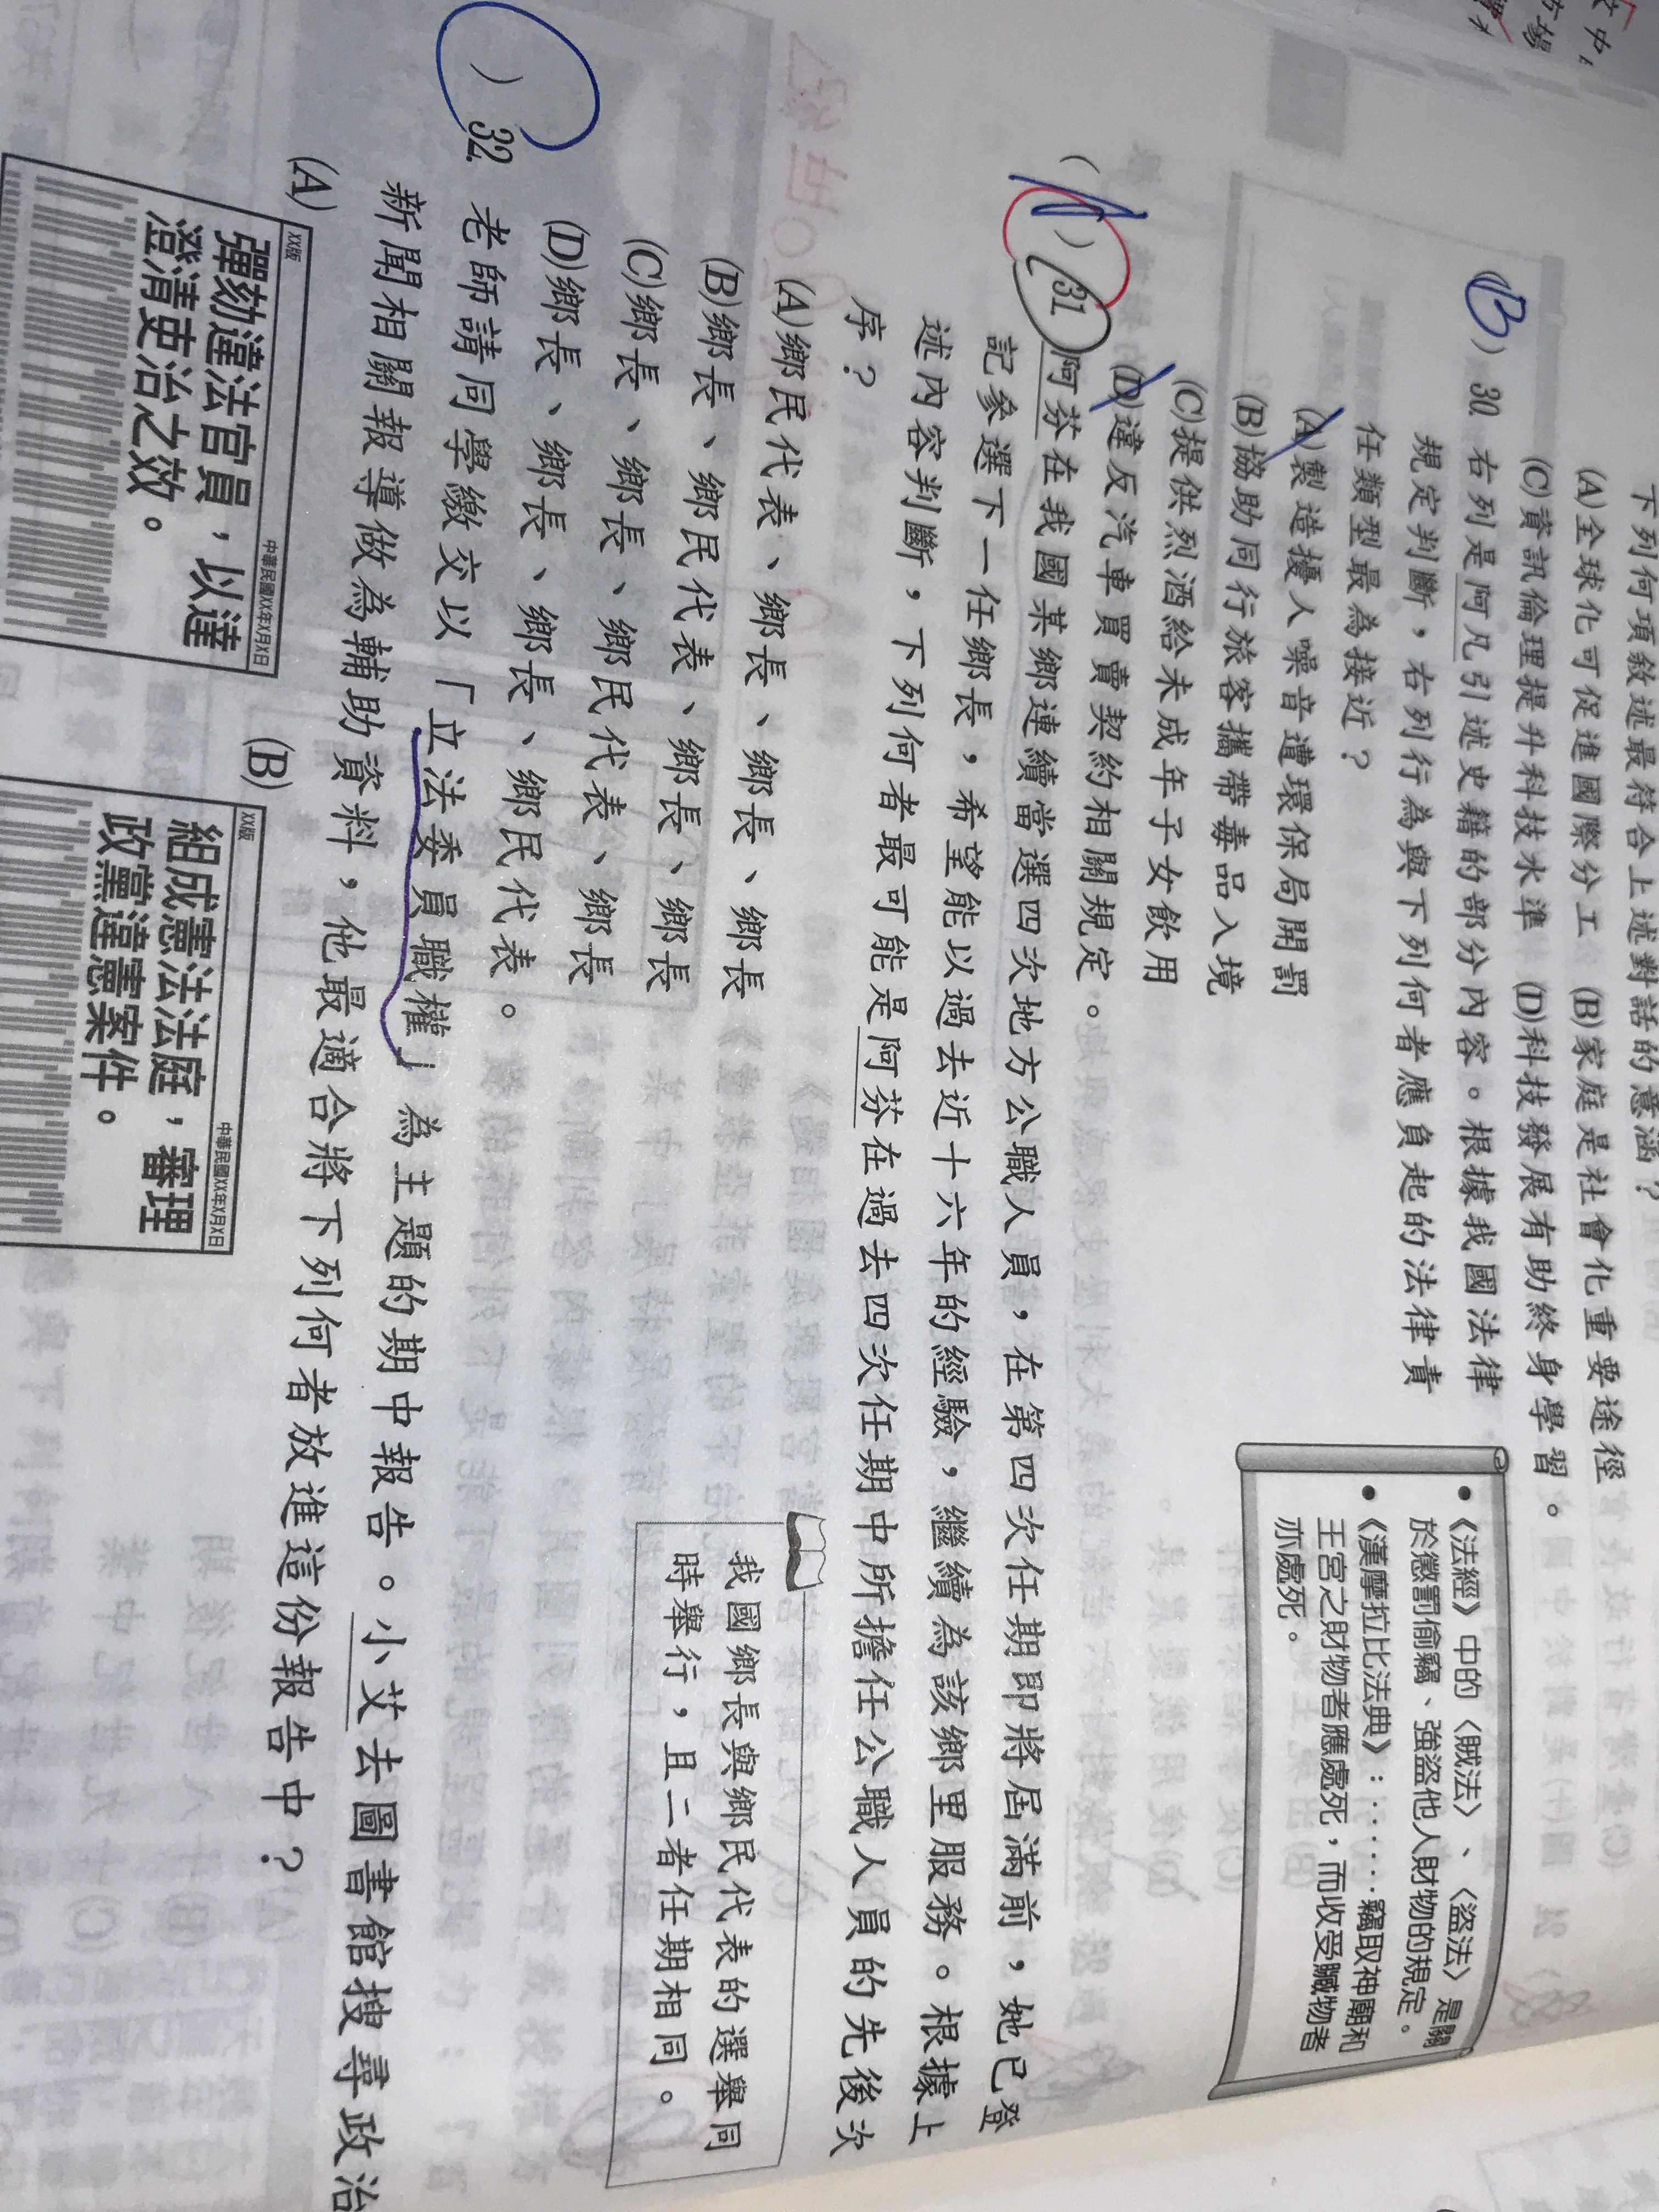 下列何項敘述最符合上述對話的意涵？
(A)全球化可促進國際分工　(B)家庭是社會化重要途徑
(C)資訊倫理提升科技水準　(D)科技發展有助終身學習。
(B) 30. 右列是阿凡引述史籍的部分內容。根據我國法律
規定判斷，右列行為與下列何者應負起的法律責
任類型最為接近？
(A)製造擾人噪音遭環保局開罰
(B)協助同行旅客攜帶毒品入境
(C)提供烈酒給未成年子女飲用
(D)違反汽車買賣契約相關規定。
•《法經》中的〈賊法〉、〈盜法〉是關
於懲罰偷竊、強盜他人財物的規定。
•《漢摩拉比法典》：……竊取神廟和
王宮之財物者應處死，而收受贓物者
亦處死。
(A) 31. 阿芬在我國某鄉連續當選四次地方公職人員，在第四次任期即將屆滿前，她已登
記參選下一任鄉長，希望能以過去近十六年的經驗，繼續為該鄉里服務。根據上
述內容判斷，下列何者最可能是阿芬在過去四次任期中所擔任公職人員的先後次
序？
(A)鄉民代表、鄉長、鄉長、鄉長
(B)鄉長、鄉民代表、鄉長、鄉長
(C)鄉長、鄉長、鄉民代表、鄉長
(D)鄉長、鄉長、鄉長、鄉民代表。
我國鄉長與鄉民代表的選舉同
時舉行，且二者任期相同。
) 32. 老師請同學繳交以「立法委員職權」為主題的期中報告。小艾去圖書館搜尋政治
新聞相關報導做為輔助資料，他最適合將下列何者放進這份報告中？
(A)
XX版　中華民國XX年X月X日
彈劾違法官員，以達
澄清吏治之效。
(B)
XX版　中華民國XX年X月X日
組成憲法法庭，審理
政黨違憲案件。